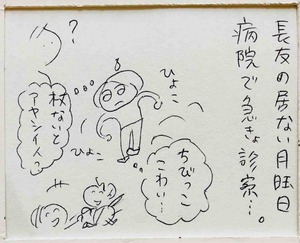 長友の居ない月曜日
病院で急きょ診察…。
ひょこ
ひょこ
ちびっこ
こわい…
?
杖ないと
アヤシイ人!?